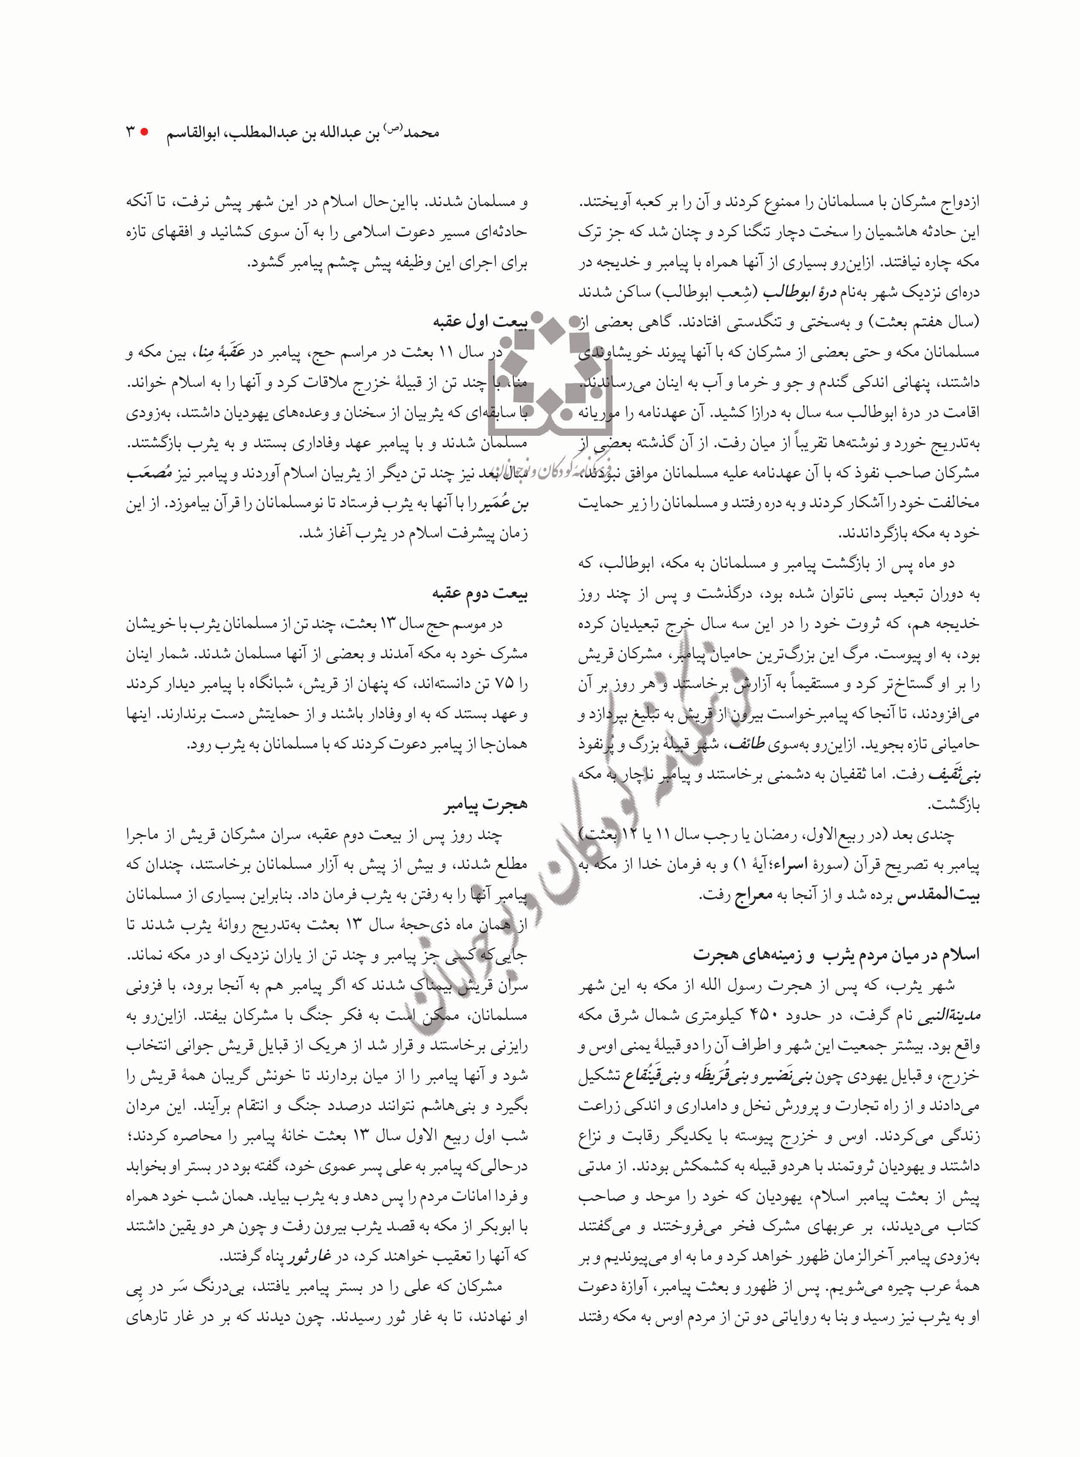 محمد(ص) بن عبدالله بن عبدالمطلب، ابوالقاسم • ۳
ازدواج مشرکان با مسلمانان را ممنوع کردند و آن را بر کعبه آویختند.
این حادثه هاشمیان را سخت دچار تنگنا کرد و چنان شد که جز ترک
مکه چاره نیافتند. ازاین‌رو بسیاری از آنها همراه با پیامبر و خدیجه در
دره‌ای نزدیک شهر به‌نام درۀ ابوطالب (شِعب ابوطالب) ساکن شدند
(سال هفتم بعثت) و به‌سختی و تنگدستی افتادند. گاهی بعضی از
مسلمانان مکه و حتی بعضی از مشرکان که با آنها پیوند خویشاوندی
داشتند، پنهانی اندکی گندم و جو و خرما و آب به اینان می‌رساندند.
اقامت در درۀ ابوطالب سه سال به درازا کشید. آن عهدنامه را موریانه
به‌تدریج خورد و نوشته‌ها تقریباً از میان رفت. از آن گذشته بعضی از
مشرکان صاحب نفوذ که با آن عهدنامه علیه مسلمانان موافق نبودند،
مخالفت خود را آشکار کردند و به دره رفتند و مسلمانان را زیر حمایت
خود به مکه بازگرداندند.
دو ماه پس از بازگشت پیامبر و مسلمانان به مکه، ابوطالب، که
به دوران تبعید بسی ناتوان شده بود، درگذشت و پس از چند روز
خدیجه هم، که ثروت خود را در این سه سال خرج تبعیدیان کرده
بود، به او پیوست. مرگ این بزرگ‌ترین حامیان پیامبر، مشرکان قریش
را بر او گستاخ‌تر کرد و مستقیماً به آزارش برخاستند و هر روز بر آن
می‌افزودند، تا آنجا که پیامبرخواست بیرون از قریش به تبلیغ بپردازد و
حامیانی تازه بجوید. ازاین‌رو به‌سوی طائف، شهر قبیلۀ بزرگ و پرنفوذ
بنی‌ثَقیف رفت. اما ثقفیان به دشمنی برخاستند و پیامبر ناچار به مکه
بازگشت.
چندی بعد (در ربیع‌الاول، رمضان یا رجب سال ۱۱ یا ۱۲ بعثت)
پیامبر به تصریح قرآن (سورۀ اسراء؛آیۀ ۱) و به فرمان خدا از مکه به
بیت‌المقدس برده شد و از آنجا به معراج رفت.
اسلام در میان مردم یثرب و زمینه‌های هجرت
شهر یثرب، که پس از هجرت رسول الله از مکه به این شهر
مدینة‌النبی نام گرفت، در حدود ۴۵۰ کیلومتری شمال شرق مکه
واقع بود. بیشتر جمعیت این شهر و اطراف آن را دو قبیلۀ یمنی اوس و
خزرج، و قبایل یهودی چون بنی‌نَضیر و بنی‌قُرَیظَه و بنی‌قَینُقاع تشکیل
می‌دادند و از راه تجارت و پرورش نخل و دامداری و اندکی زراعت
زندگی می‌کردند. اوس و خزرج پیوسته با یکدیگر رقابت و نزاع
داشتند و یهودیان ثروتمند با هردو قبیله به کشمکش بودند. از مدتی
پیش از بعثت پیامبر اسلام، یهودیان که خود را موحد و صاحب
کتاب می‌دیدند، بر عربهای مشرک فخر می‌فروختند و می‌گفتند
به‌زودی پیامبر آخرالزمان ظهور خواهد کرد و ما به او می‌پیوندیم و بر
همۀ عرب چیره می‌شویم. پس از ظهور و بعثت پیامبر، آوازۀ دعوت
او به یثرب نیز رسید و بنا به روایاتی دو تن از مردم اوس به مکه رفتند
و مسلمان شدند. بااین‌حال اسلام در این شهر پیش نرفت، تا آنکه
حادثه‌ای مسیر دعوت اسلامی را به آن سوی کشانید و افقهای تازه
برای اجرای این وظیفه پیش چشم پیامبر گشود.
بیعت اول عقبه
در سال ۱۱ بعثت در مراسم حج، پیامبر در عَقَبۀ مِنا، بین مکه و
منا، با چند تن از قبیلۀ خزرج ملاقات کرد و آنها را به اسلام خواند.
با سابقه‌ای که یثربیان از سخنان و وعده‌های یهودیان داشتند، به‌زودی
مسلمان شدند و با پیامبر عهد وفاداری بستند و به یثرب بازگشتند.
سال بعد نیز چند تن دیگر از یثربیان اسلام آوردند و پیامبر نیز مُصعَب
بن عُمَیر را با آنها به یثرب فرستاد تا نومسلمانان را قرآن بیاموزد. از این
زمان پیشرفت اسلام در یثرب آغاز شد.
بیعت دوم عقبه
در موسم حج سال ۱۳ بعثت، چند تن از مسلمانان یثرب با خویشان
مشرک خود به مکه آمدند و بعضی از آنها مسلمان شدند. شمار اینان
را ۷۵ تن دانسته‌اند، که پنهان از قریش، شبانگاه با پیامبر دیدار کردند
و عهد بستند که به او وفادار باشند و از حمایتش دست برندارند. اینها
همان‌جا از پیامبر دعوت کردند که با مسلمانان به یثرب رود.
هجرت پیامبر
چند روز پس از بیعت دوم عقبه، سران مشرکان قریش از ماجرا
مطلع شدند، و بیش از پیش به آزار مسلمانان برخاستند، چندان که
پیامبر آنها را به رفتن به یثرب فرمان داد. بنابراین بسیاری از مسلمانان
از همان ماه ذی‌حجۀ سال ۱۳ بعثت به‌تدریج روانۀ یثرب شدند تا
جایی‌که کسی جز پیامبر و چند تن از یاران نزدیک او در مکه نماند.
سران قریش بیمناک شدند که اگر پیامبر هم به آنجا برود، با فزونی
مسلمانان، ممکن است به فکر جنگ با مشرکان بیفتد. ازاین‌رو به
رایزنی برخاستند و قرار شد از هریک از قبایل قریش جوانی انتخاب
شود و آنها پیامبر را از میان بردارند تا خونش گریبان همۀ قریش را
بگیرد و بنی‌هاشم نتوانند درصدد جنگ و انتقام برآیند. این مردان
شب اول ربیع الاول سال ۱۳ بعثت خانۀ پیامبر را محاصره کردند؛
درحالی‌که پیامبر به علی پسر عموی خود، گفته بود در بستر او بخوابد
و فردا امانات مردم را پس دهد و به یثرب بیاید. همان شب خود همراه
با ابوبکر از مکه به قصد یثرب بیرون رفت و چون هر دو یقین داشتند
که آنها را تعقیب خواهند کرد، در غار ثور پناه گرفتند.
مشرکان که علی را در بستر پیامبر یافتند، بی‌درنگ سَر در پِی
او نهادند، تا به غار ثور رسیدند. چون دیدند که بر در غار تارهای
فرهنگنامۀ کودکان و نوجوانان
فرهنگنامۀ کودکان و نوجوانان